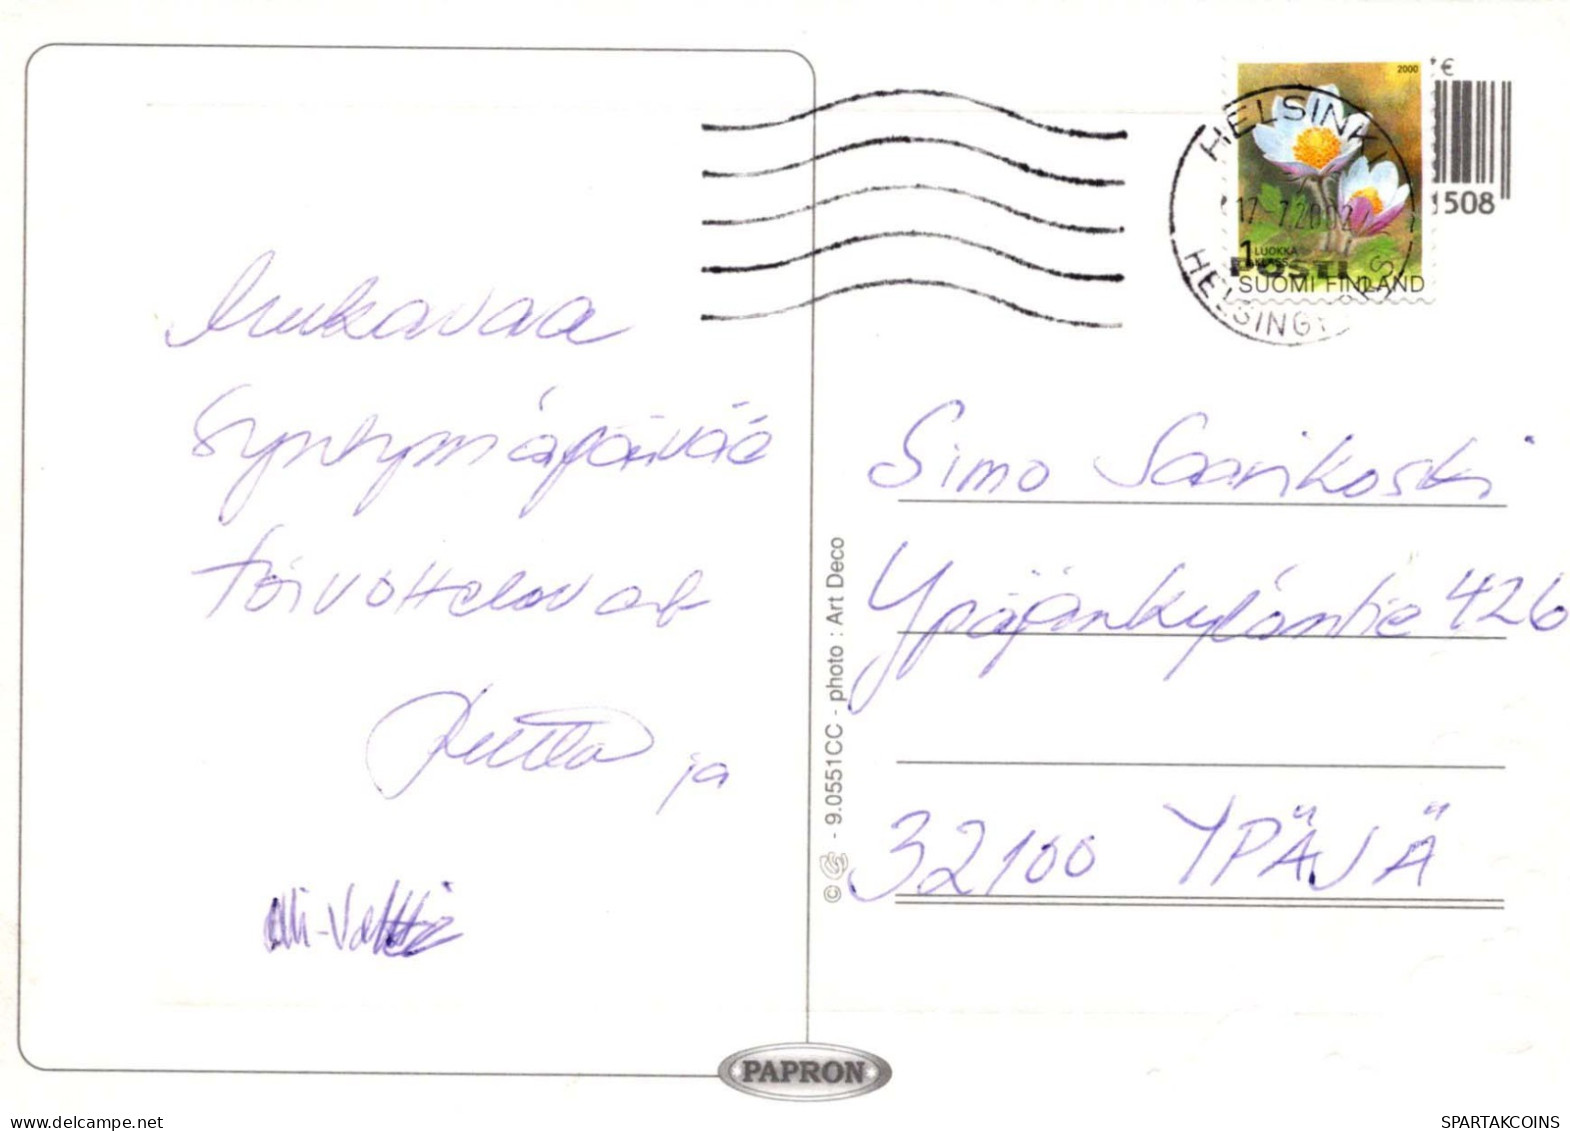 Mukavaa
Syntymäpäivää
toivottelevat
Jutta ja
Olli-Valtteri
HELSINKI
17-7.2002
HELSINGFORS
POSTI
2000
1 LUOKKA
KLASS
SUOMI FINLAND
€
1508
Simo Saarikoski
Ypäjänkyläntie 426
32100 YPÄJÄ
© - 9.0551CC - photo : Art Deco
PAPRON
delcampe.net
SPARTAKCOINS